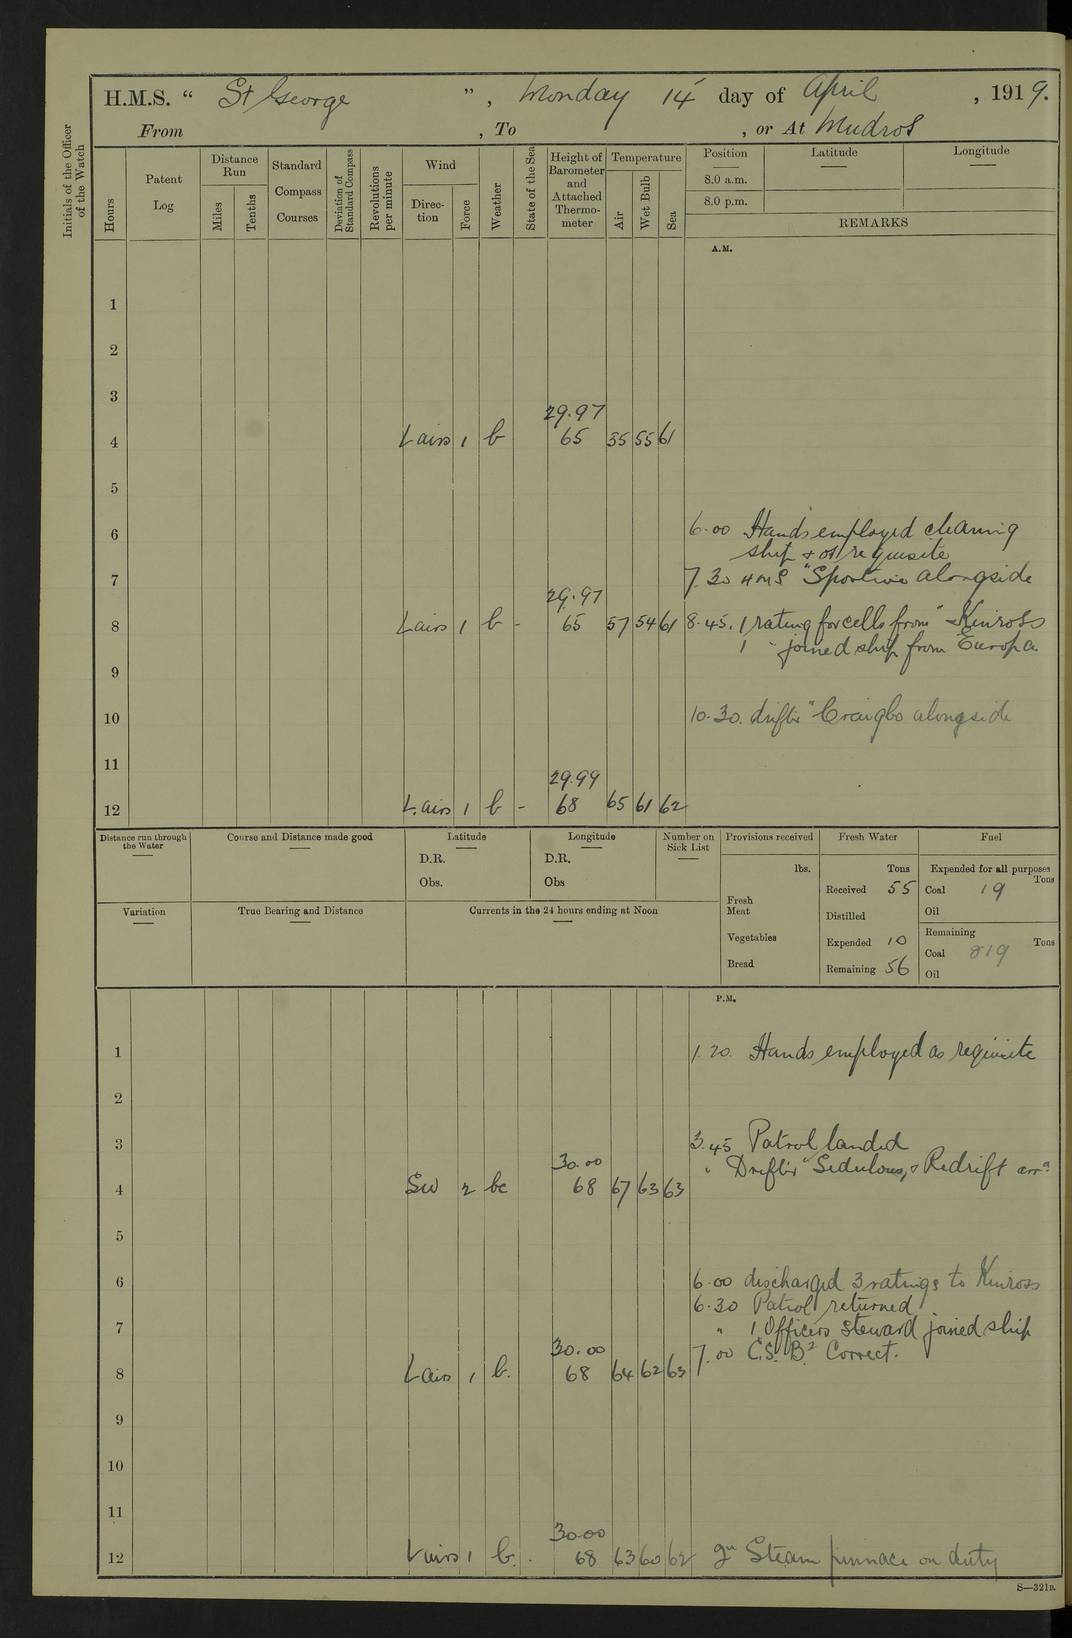 H.M.S. “ St George ” , Monday 14 day of April , 1919.
From , To , or At Mudros
Initials of the Officer of the Watch
Hours
Patent Log
Distance Run
Miles
Tenths
Standard Compass Courses
Deviation of Standard Compass
Revolutions per minute
Wind
Direction
Force
Weather
State of the Sea
Height of Barometer and Attached Thermometer
Temperature
Air
Wet Bulb
Sea
Position
8.0 a.m.
8.0 p.m.
Latitude
Longitude
REMARKS
A.M.
1
2
3
29.97
4 Lairs 1 b 65 55 55 61
5
6 6.00 Hands employed cleaning
ship & as requisite
7 7.30 HMS "Sportive alongside
29.97
8 Lairs 1 b - 65 57 54 61 8.45. 1 rating for cells from "Kinross
1 " joined ship from Europa
9
10 10.30. drifter "Craigbo alongside
11
29.99
12 L.airs 1 b - 68 65 61 62
Distance run through the Water
Course and Distance made good
Latitude
D.R.
Obs.
Longitude
D.R.
Obs
Number on Sick List
Provisions received
lbs.
Fresh Meat
Vegetables
Bread
Fresh Water
Tons
Received 55
Distilled
Expended 10
Remaining 56
Fuel
Expended for all purposes
Tons
Coal 19
Oil
Remaining
Tons
Coal 819
Oil
Variation
True Bearing and Distance
Currents in the 24 hours ending at Noon
P.M.
1 1.20. Hands employed as requisite
2
3 3.45 Patrol landed
" Drifters "Sedulous, & Redrift arrd
30.00
4 SW 2 bc 68 67 63 63
5
6 6.00 discharged 3 ratings to Kinross
6.30 Patrol returned
7 " 1 Officers steward joined ship
30.00 7.00 C.S. Bs Correct.
8 Lairs 1 b. 68 64 62 63
9
10
11
30.00
12 Lairs 1 b. - 68 63 60 62 Steam pinnace on duty
S—321B.